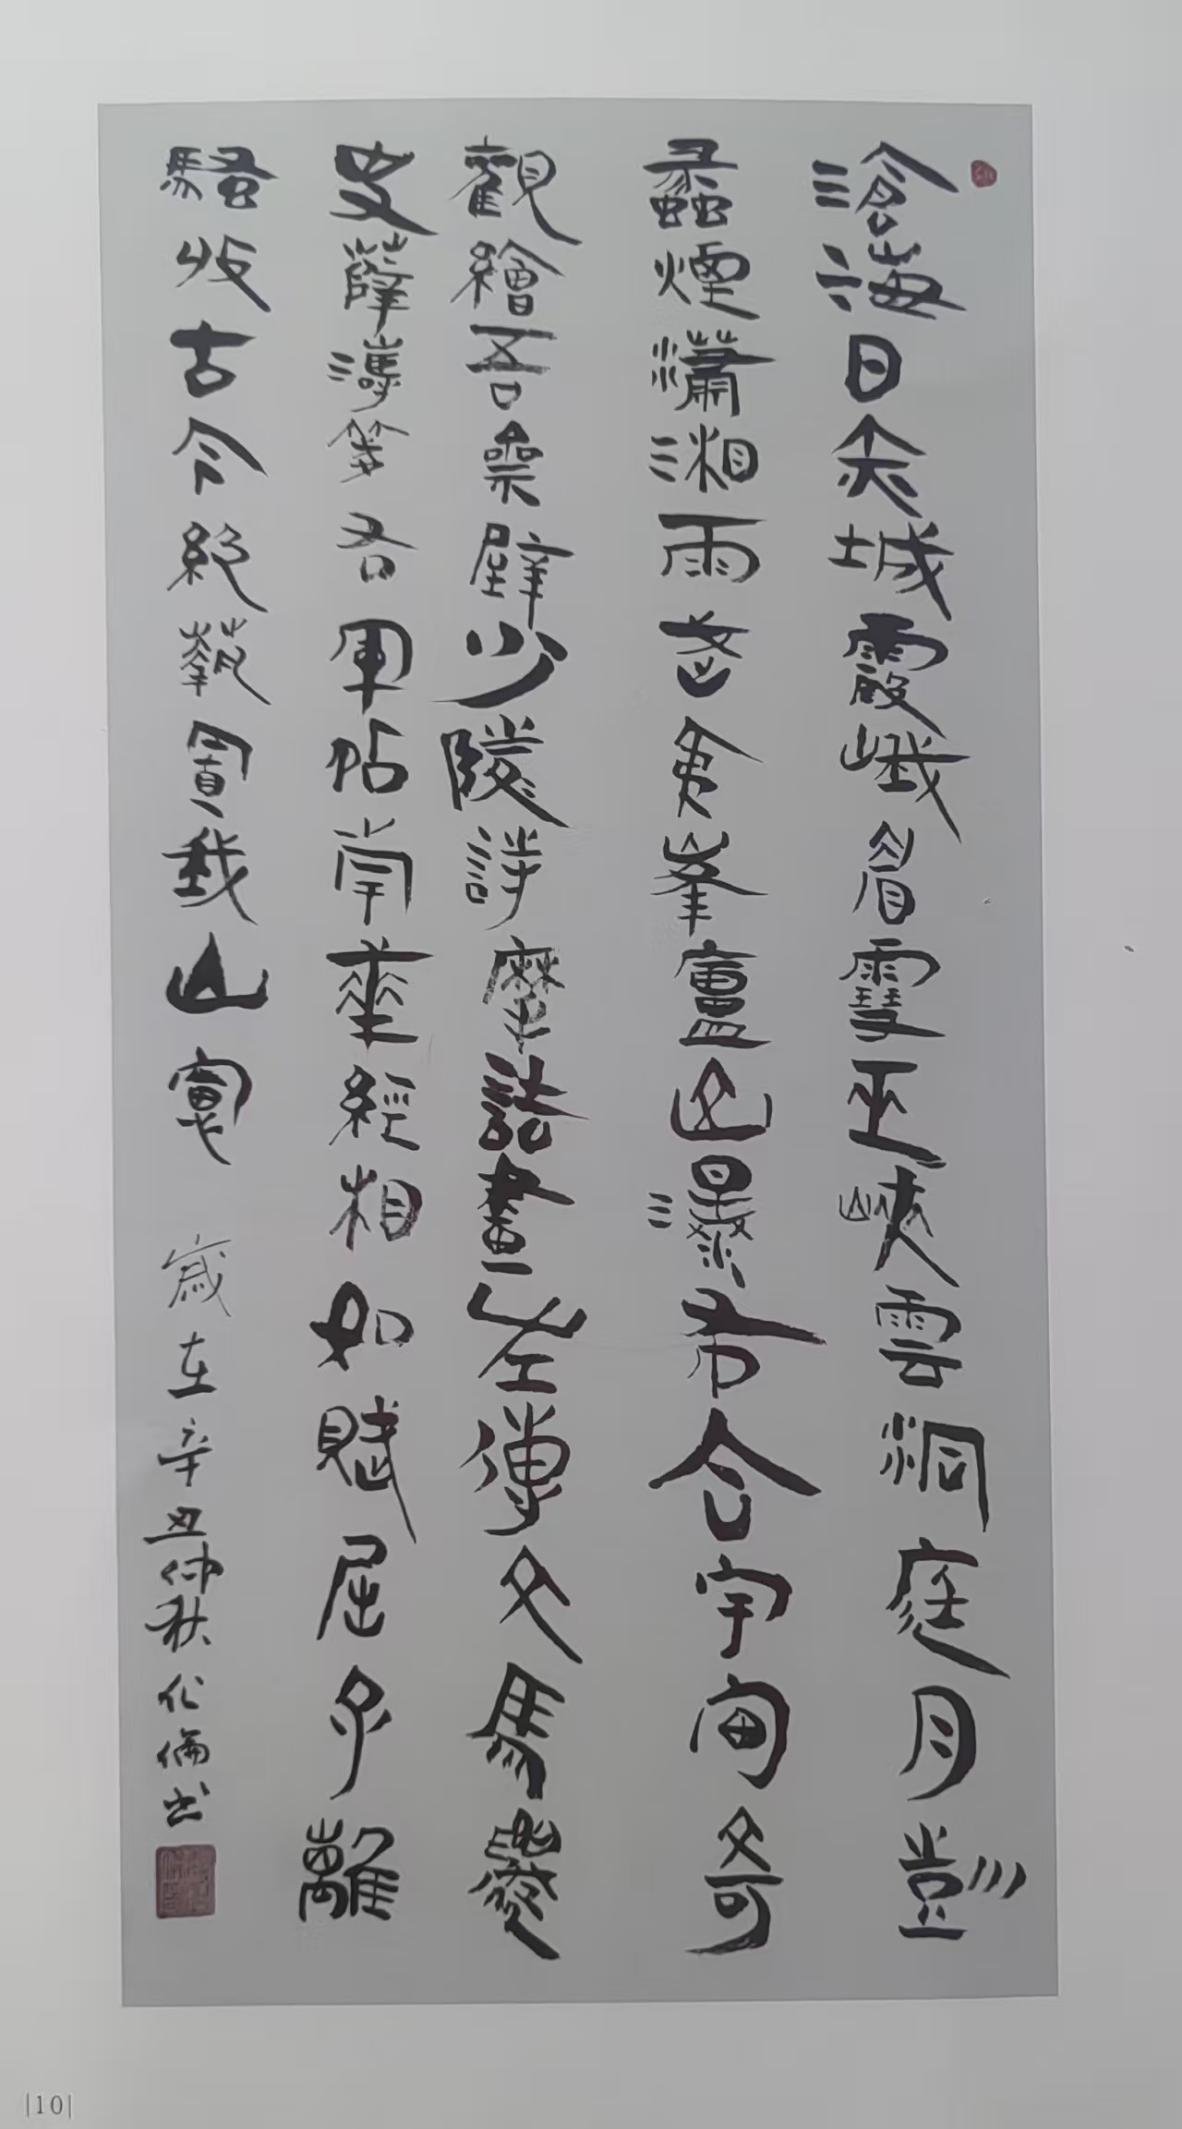 滄海日赤城霞峨眉雪巫峽雲洞庭月彭
蠡煙瀟湘雨武夷峯廬山瀑布合宇宙奇
觀繪吾齋壁少陵詩摩詰畫左傳文馬遷
史薛濤箋右軍帖南華經相如賦屈子離
騷收古今絕藝置我山窗 歲在辛丑仲秋化倫书
|10|